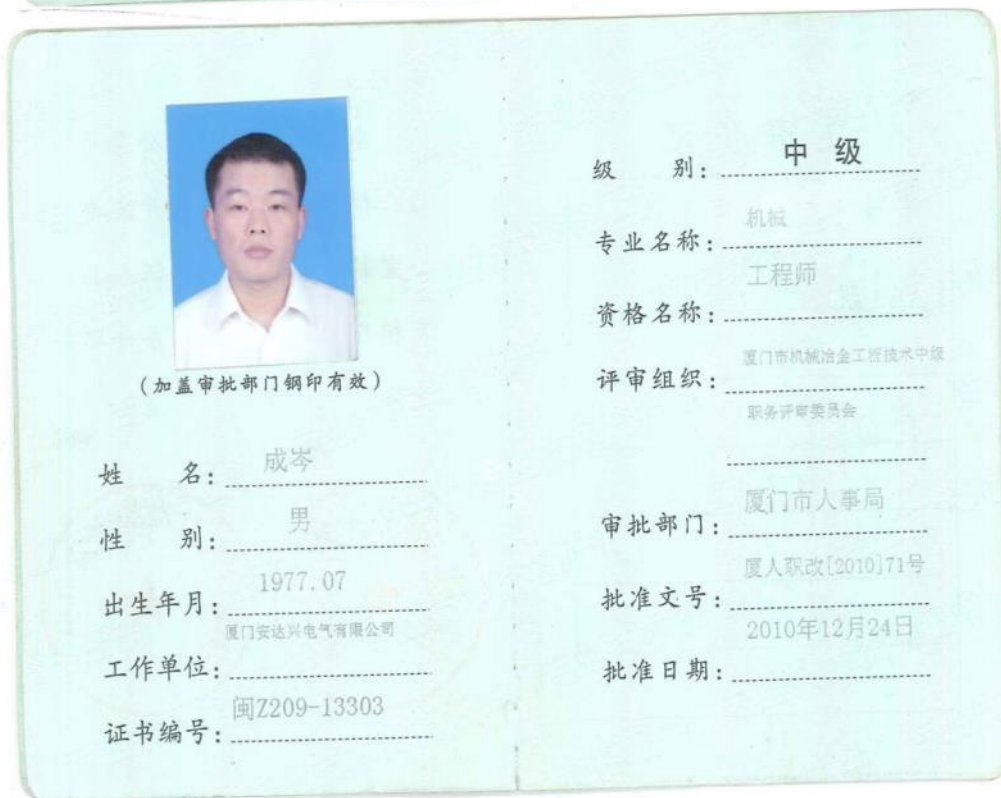 (加盖审批部门钢印有效)
姓 名: 成岑
性 别: 男
出生年月: 1977.07
工作单位: 厦门安达兴电气有限公司
证书编号: 闽Z209-13303
级 别: 中 级
专业名称: 机械
资格名称: 工程师
评审组织: 厦门市机械冶金工程技术中级
职务评审委员会
审批部门: 厦门市人事局
批准文号: 厦人职改[2010]71号
批准日期: 2010年12月24日